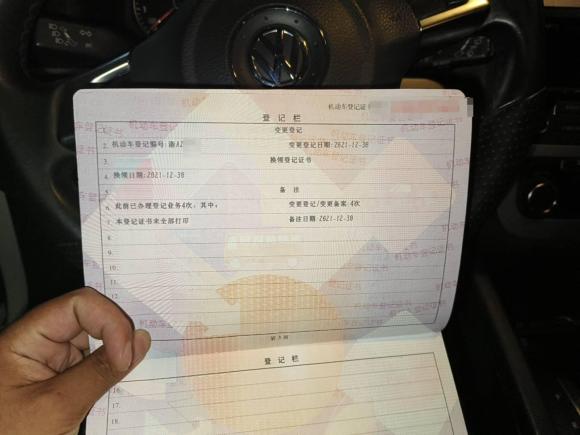 机动车登记证
登记栏
1. 变更登记
2. 机动车登记编号:渝AZ 变更登记日期:2021-12-30
3. 换领登记证书
4. 换领日期:2021-12-30
5. 备注
6. 此前已办理登记业务4次，其中: 变更登记/变更备案:4次
7. 本登记证书未全部打印 备注日期:2021-12-30
8.
9.
10.
11.
12.
登记栏
16.
17.
18.